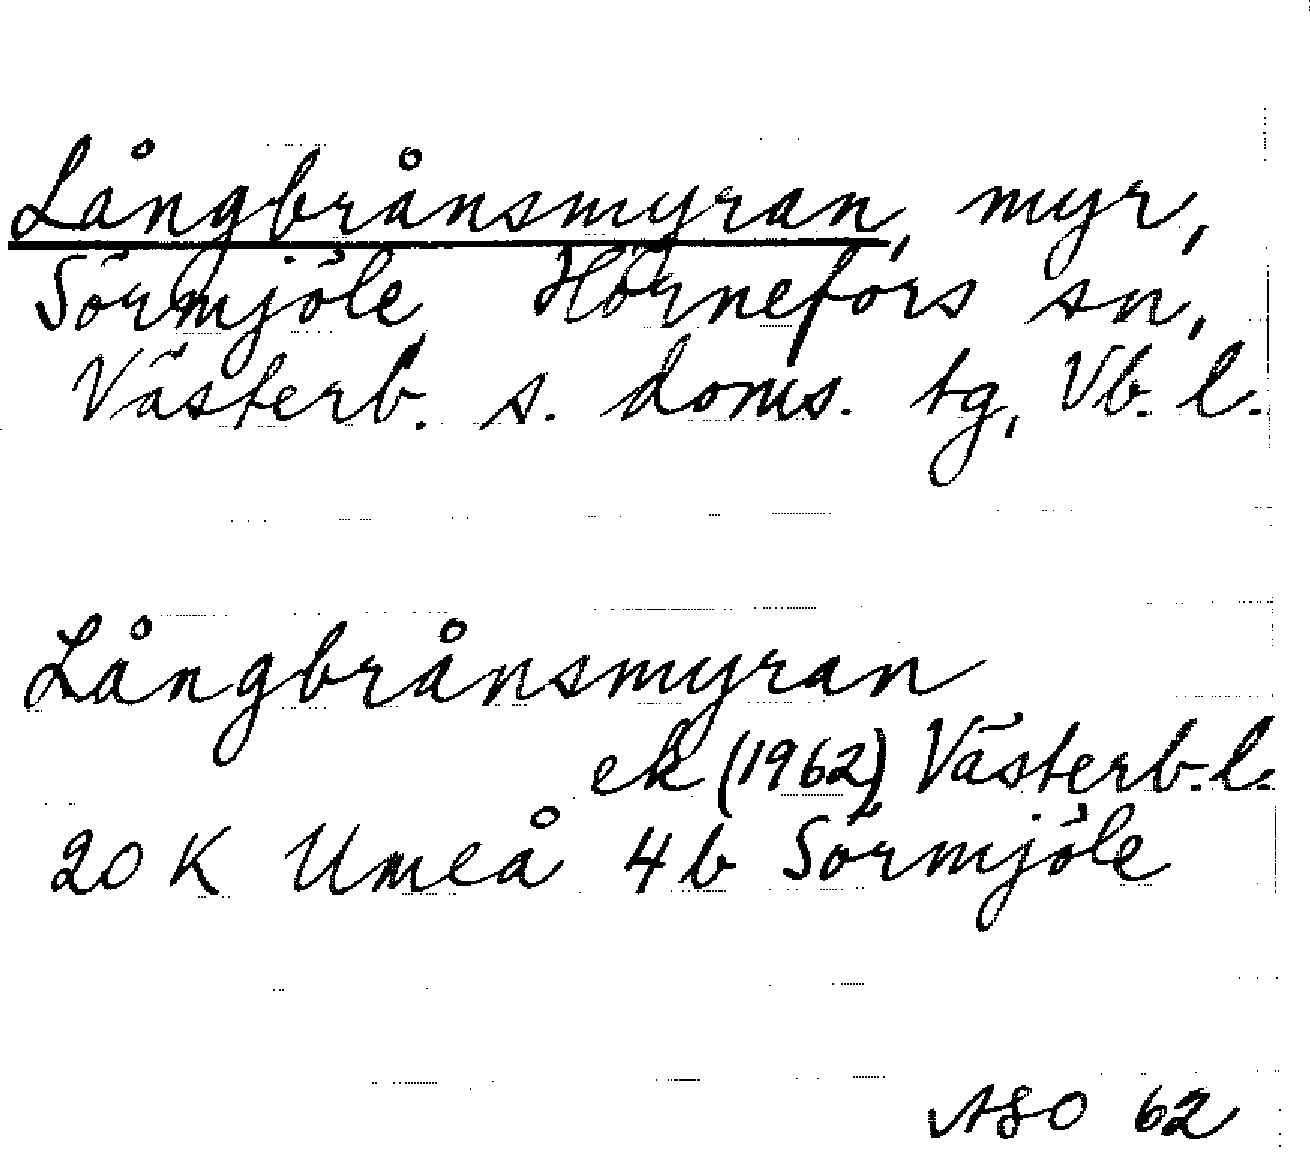 Långbrånsmyran, myr,
Sörmjöle Hörnefors sn,
Västerb. s. doms. tg, Vb. l.
Långbrånsmyran
ek (1962) Västerb. l.
20 K Umeå 4 b Sörmjöle
ASO 62